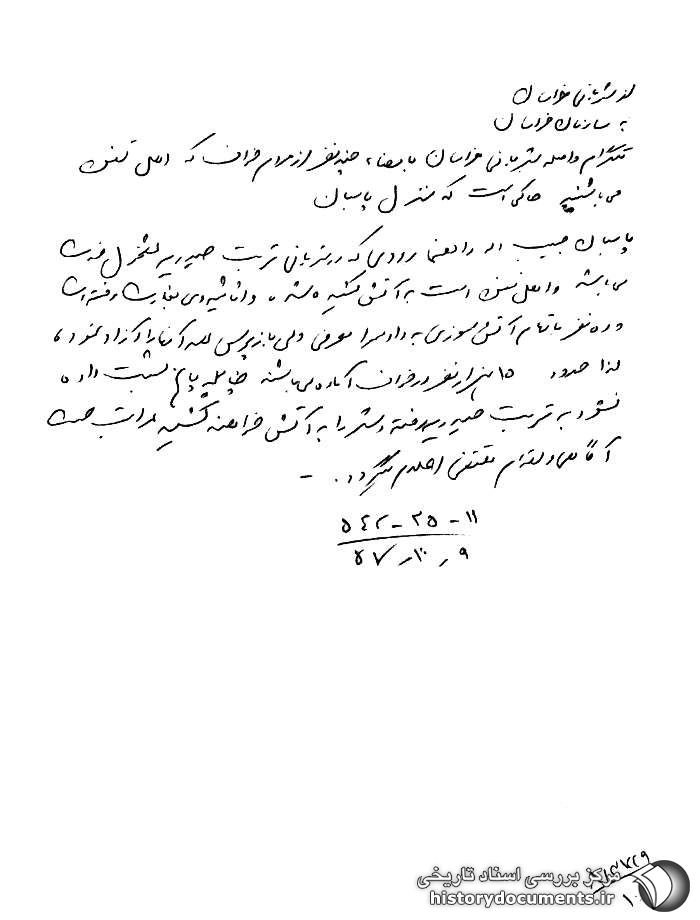 از شهربانی خراسان
به سازمان خراسان
تلگرام واصله شهربانی خراسان بامضاء چند نفر از مردم خواف که اهل تسنن
می باشند حاکی است که منزل پاسبان
پاسبان حبیب اله راهنما رودی که در شهربانی تربت حیدریه مشغول خدمت
می باشد و اهل تسنن است به آتش کشیده شده و اثاثیه وی بغارت رفته است
و ده نفر باتهام آتش سوزی به دادسرا معرفی ولی بازپرس همه آنها را آزاد نموده
لذا حدود ۱۵ هزار نفر در خواف آماده می باشند چنانچه پاسخ مثبت داده
نشود به تربت حیدریه رفته و شهر را به آتش خواهند کشید مراتب جهت
آگاهی و اقدام مقتضی اعلام میگردد. -
۵۴۲-۲۵-۱۱
۵۷٫۱۰٫۹
مرکز بررسی اسناد تاریخی
historydocuments.ir